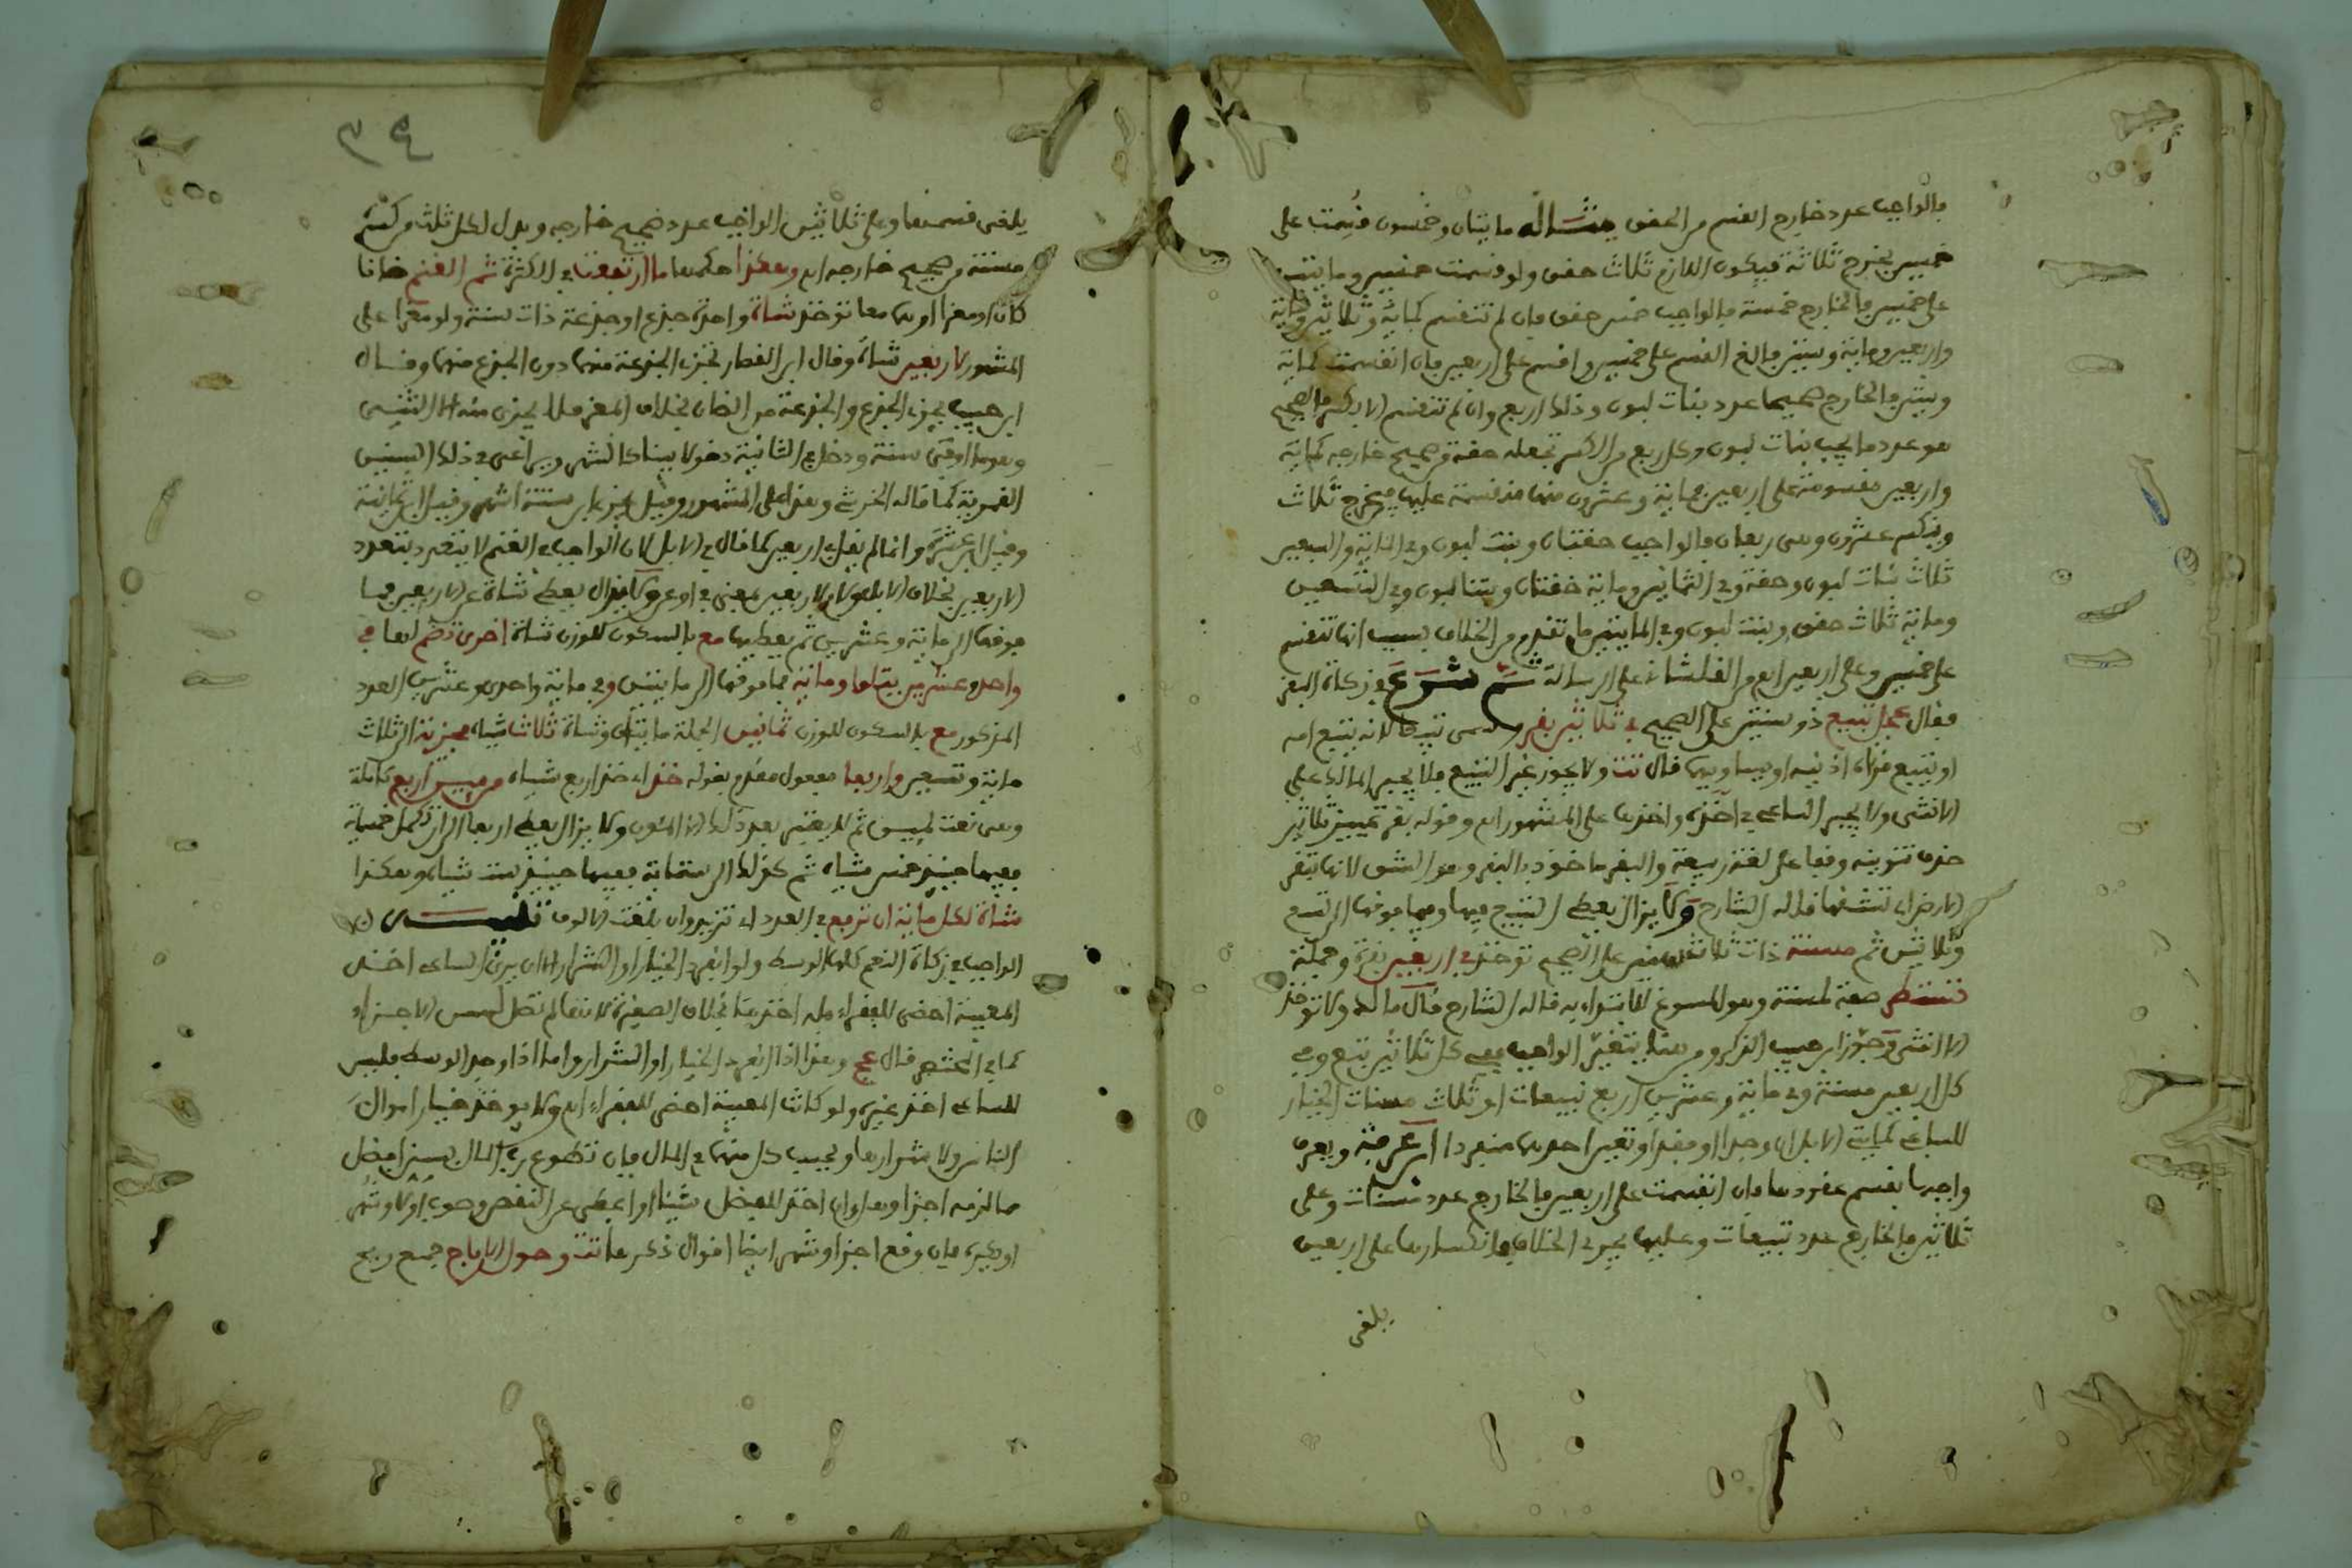 فالواجب عدد خارج القسم من الحقق مثاله مايتان وخمسون قسمت على
خمسين يخرج ثلاثة فيكون اللازم ثلاث حقق ولو قسمت خمسين ومايتين
على خمسين فالخارج خمسة فالواجب خمس حقق فإن لم تنقسم كماية وثلاثين وماية
واربعين وماية وستين فالغ القسم على خمسين واقسم على اربعين فإن انقسمت كماية
وستين فالخارج صحيحا عدد بنات لبون وذلك اربع وان لم تنقسم الا بكسر فالصحيح
هو عدد ما يجب بنات لبون وكل ربع من الكسر تجعله حقة من صحيح خارجه كماية
واربعين مقسومة على اربعين فماية وعشرون منها منقسمة عليها فيخرج ثلاث
وينكسر عشرون وهى ربعان فالواجب حقتان وبنت لبون وفي الماية والسبعين
ثلاث بنات لبون وحقة وفي الثمانين وماية حقتان وبنتا لبون وفي التسعين
وماية ثلاث حقق وبنت لبون وفي المايتين ما تقدم من الخلاف بسبب انها تنقسم
على خمسين وعلى اربعين اه من القلشانى على الرسالة ثم شرع في زكاة البقر
فقال عجل تبيع ذو سنتين على الصحيح في ثلاثين بقر وسمى تبيعا لانه يتبع امه
او يتبع قرناه اذنيه او يساويهما قال تت ولا يجوز غير التبيع فلا يجبر المالك على
الانثى ولا يجبر الساعى في اخذه واخذها على المشهور اه وقوله بقر تمييز ثلاثين
حذف تنوينه وقفا على لغة ربيعة والبقر ماخوذ بالبقر وهو الشق لانها تبقر
الارض اي تشقها قاله الشارح ولا يزال يعطى التبيع فيها وفيما فوقها الى تسع
وثلاثين ثم مسنة ذات ثلاث سنين على الصحيح توخذ في اربعين بقرة وجملة
تستطر صفة لمسنة وهو المسوغ للابتداء به قاله الشارح قال مالك ولا توخذ
الا انثى وجوز ابن حبيب الذكر ومن هنا يتغير الواجب ففي كل ثلاثين تبيع وفي
كل اربعين مسنة وفي ماية وعشرين اربع تبيعات او ثلاث مسنات الخيار
للساعى كمايتى الابل ان وجدا او فقدا وتعين احدهما منفردا ابن عرفة ويعرف
واجبها بقسم عقودها فإن انقسمت على اربعين فالخارج عدد مسنات وعلى
ثلاثين فالخارج عدد تبيعات وعليهما يجرى الخلاف وانكسارها على اربعين
يلغى
٣٤
يلغى قسمتها وعلى ثلاثين الواجب عدد صحيح خارجه وبدل لكل ثلث من كسره
مسنة من صحيح خارجه اه وهكذا حكمها ما ارتفعت في الكثرة ثم الغنم ضانا
كان او معزا او هما معا توخذ شاة واحدة جذع او جذعة ذات سنة ولو معزا على
المشهور لاربعين شاة وقال ابن القصار تجزى الجذعة منهما دون الجذع منهما وقال
ابن حبيب يجزى الجذع والجذعة من الضان بخلاف المعز فلا يجزى منه الا الثنى
وهو ما اوفى سنة ودخل في الثانية دخولا بينا كالشهر ويراعى في ذلك السنين
القمرية كما قاله الخرشى وهذا على المشهور وقيل الجذع ابن ستة اشهر وقيل ابن ثمانية
وقيل ابن عشرة وانما لم يقل في اربعين كما قال في الابل لان الواجب في الغنم لا يتعدد بتعدد
الاربعين بخلاف الابل ولام لاربعين بمعنى في او عن ولا يزال يعطى شاة عن الاربعين فما
فوقها الى ماية وعشرين ثم يعطيها مع بالسكون للوزن شاة اخرى تضم لها في
واحد وعشرين يتلوا وماية فما فوقها الى مايتين وفي ماية واحد وعشرين العدد
المذكور مع بالسكون للوزن ثمانين الجملة مايتان وشاة ثلاث شياه مجزية الى ثلاث
ماية وتسعين واربعا مفعول مقدم بقوله خذ اي خذ اربع شياه من ميين اربع كاملة
وهى نعت لميين ثم لا يعتبر بعد ذلك الا الميون ولا يزال يعطى اربعا الى ان تكمل خمسماية
ففيها حينيذ خمس شياه ثم كذلك الى ستماية ففيها حينيذ ست شياه وهكذا
شاة لكل ماية ان ترفع في العدد اي تزيد وان بلغت الالوف تنبيه
الواجب في زكاة النعم كلها الوسط ولو انفرد الخيار او الشرار الا ان يرى الساعى اخذ
المعيبة احض للفقراء فله اخذها بخلاف الصغيرة لانها لم تصل لسن الاجزاء
كما في المختصر قال عج وهذا اذا انفرد الخيار او الشرار واما اذا وجد الوسط فليس
للساعى اخذ غيره ولو كانت المعيبة احض للفقراء اه ولا يوخذ خيار اموال
الناس ولا شرارها ولو يجب كل منهما في المال فإن تطوع رب المال بسن افضل
مما لزمه اجزا وهل وان اخذ للفضل شيئا او اعطى عن النقص وصوب او لا وشهر
او يكره فإن وقع اجزا وشهر ايضا اقوال ذكرها تت وحول الارباح جمع ربح